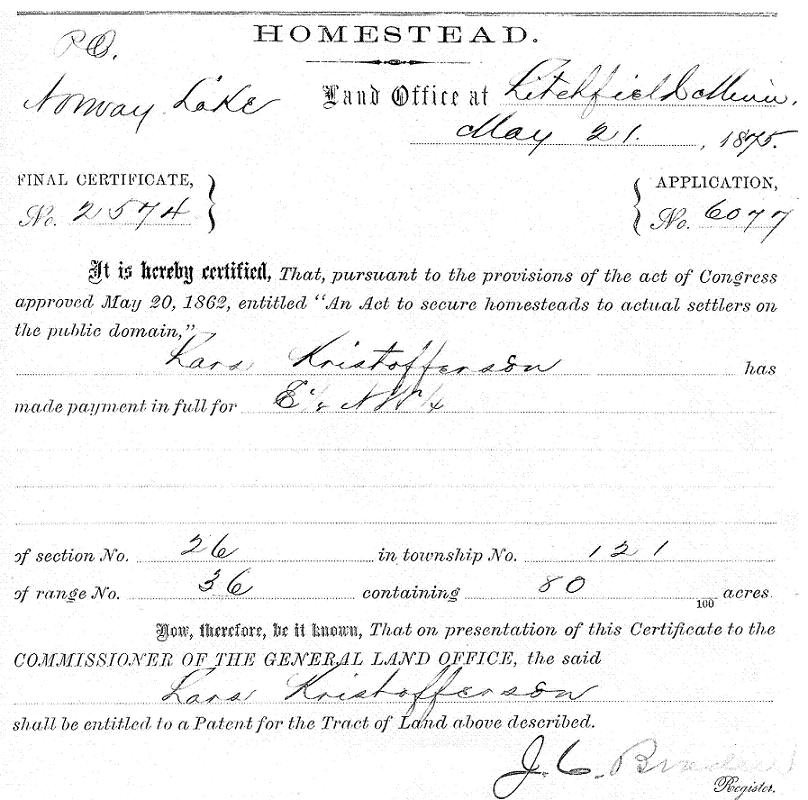 HOMESTEAD.
P.O.
Norway Lake
Land Office at Litchfield Minn.
May 21. , 1875.
FINAL CERTIFICATE,
No. 2574
APPLICATION,
No. 6077
It is hereby certified, That, pursuant to the provisions of the act of Congress
approved May 20, 1862, entitled "An Act to secure homesteads to actual settlers on
the public domain,"
Lars Kristofferson has
made payment in full for E 1/2 NW 1/4
of section No. 26 in township No. 121
of range No. 36 containing 80 100 acres.
Now, therefore, be it known, That on presentation of this Certificate to the
COMMISSIONER OF THE GENERAL LAND OFFICE, the said
Lars Kristofferson
shall be entitled to a Patent for the Tract of Land above described.
J. C. Braden
Register.